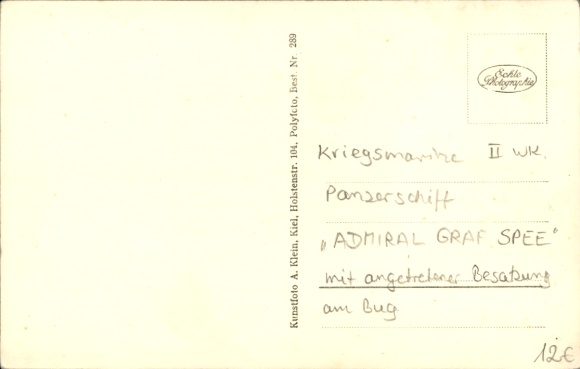 Kunstfoto A. Klein, Kiel, Holstenstr. 104, Polyfoto, Best. Nr. 289
Echte
Photographie
Kriegsmarine II WK.
Panzerschiff
„ADMIRAL GRAF SPEE"
mit angetretener Besatzung
am Bug
12€